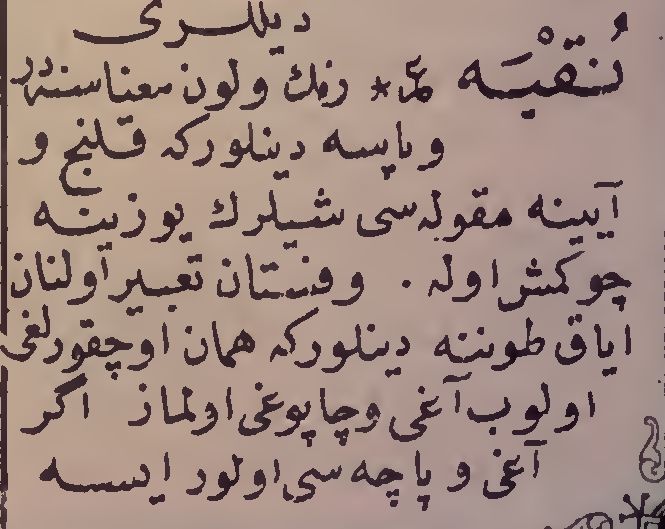 دیللری
نُقْبَه ع * رنك ولون معناسنه در
و پاسه دینلور که قلنج و
آیینه مقوله سی شیلرك یوزینه
چوکمش اوله . وفستان تعبیر اولنان
ایاق طوننه دینلور که همان اوچقورلغی
اولوب آغی وچاپوغی اولماز اکر
آغی و پاچه سی اولور ایسه